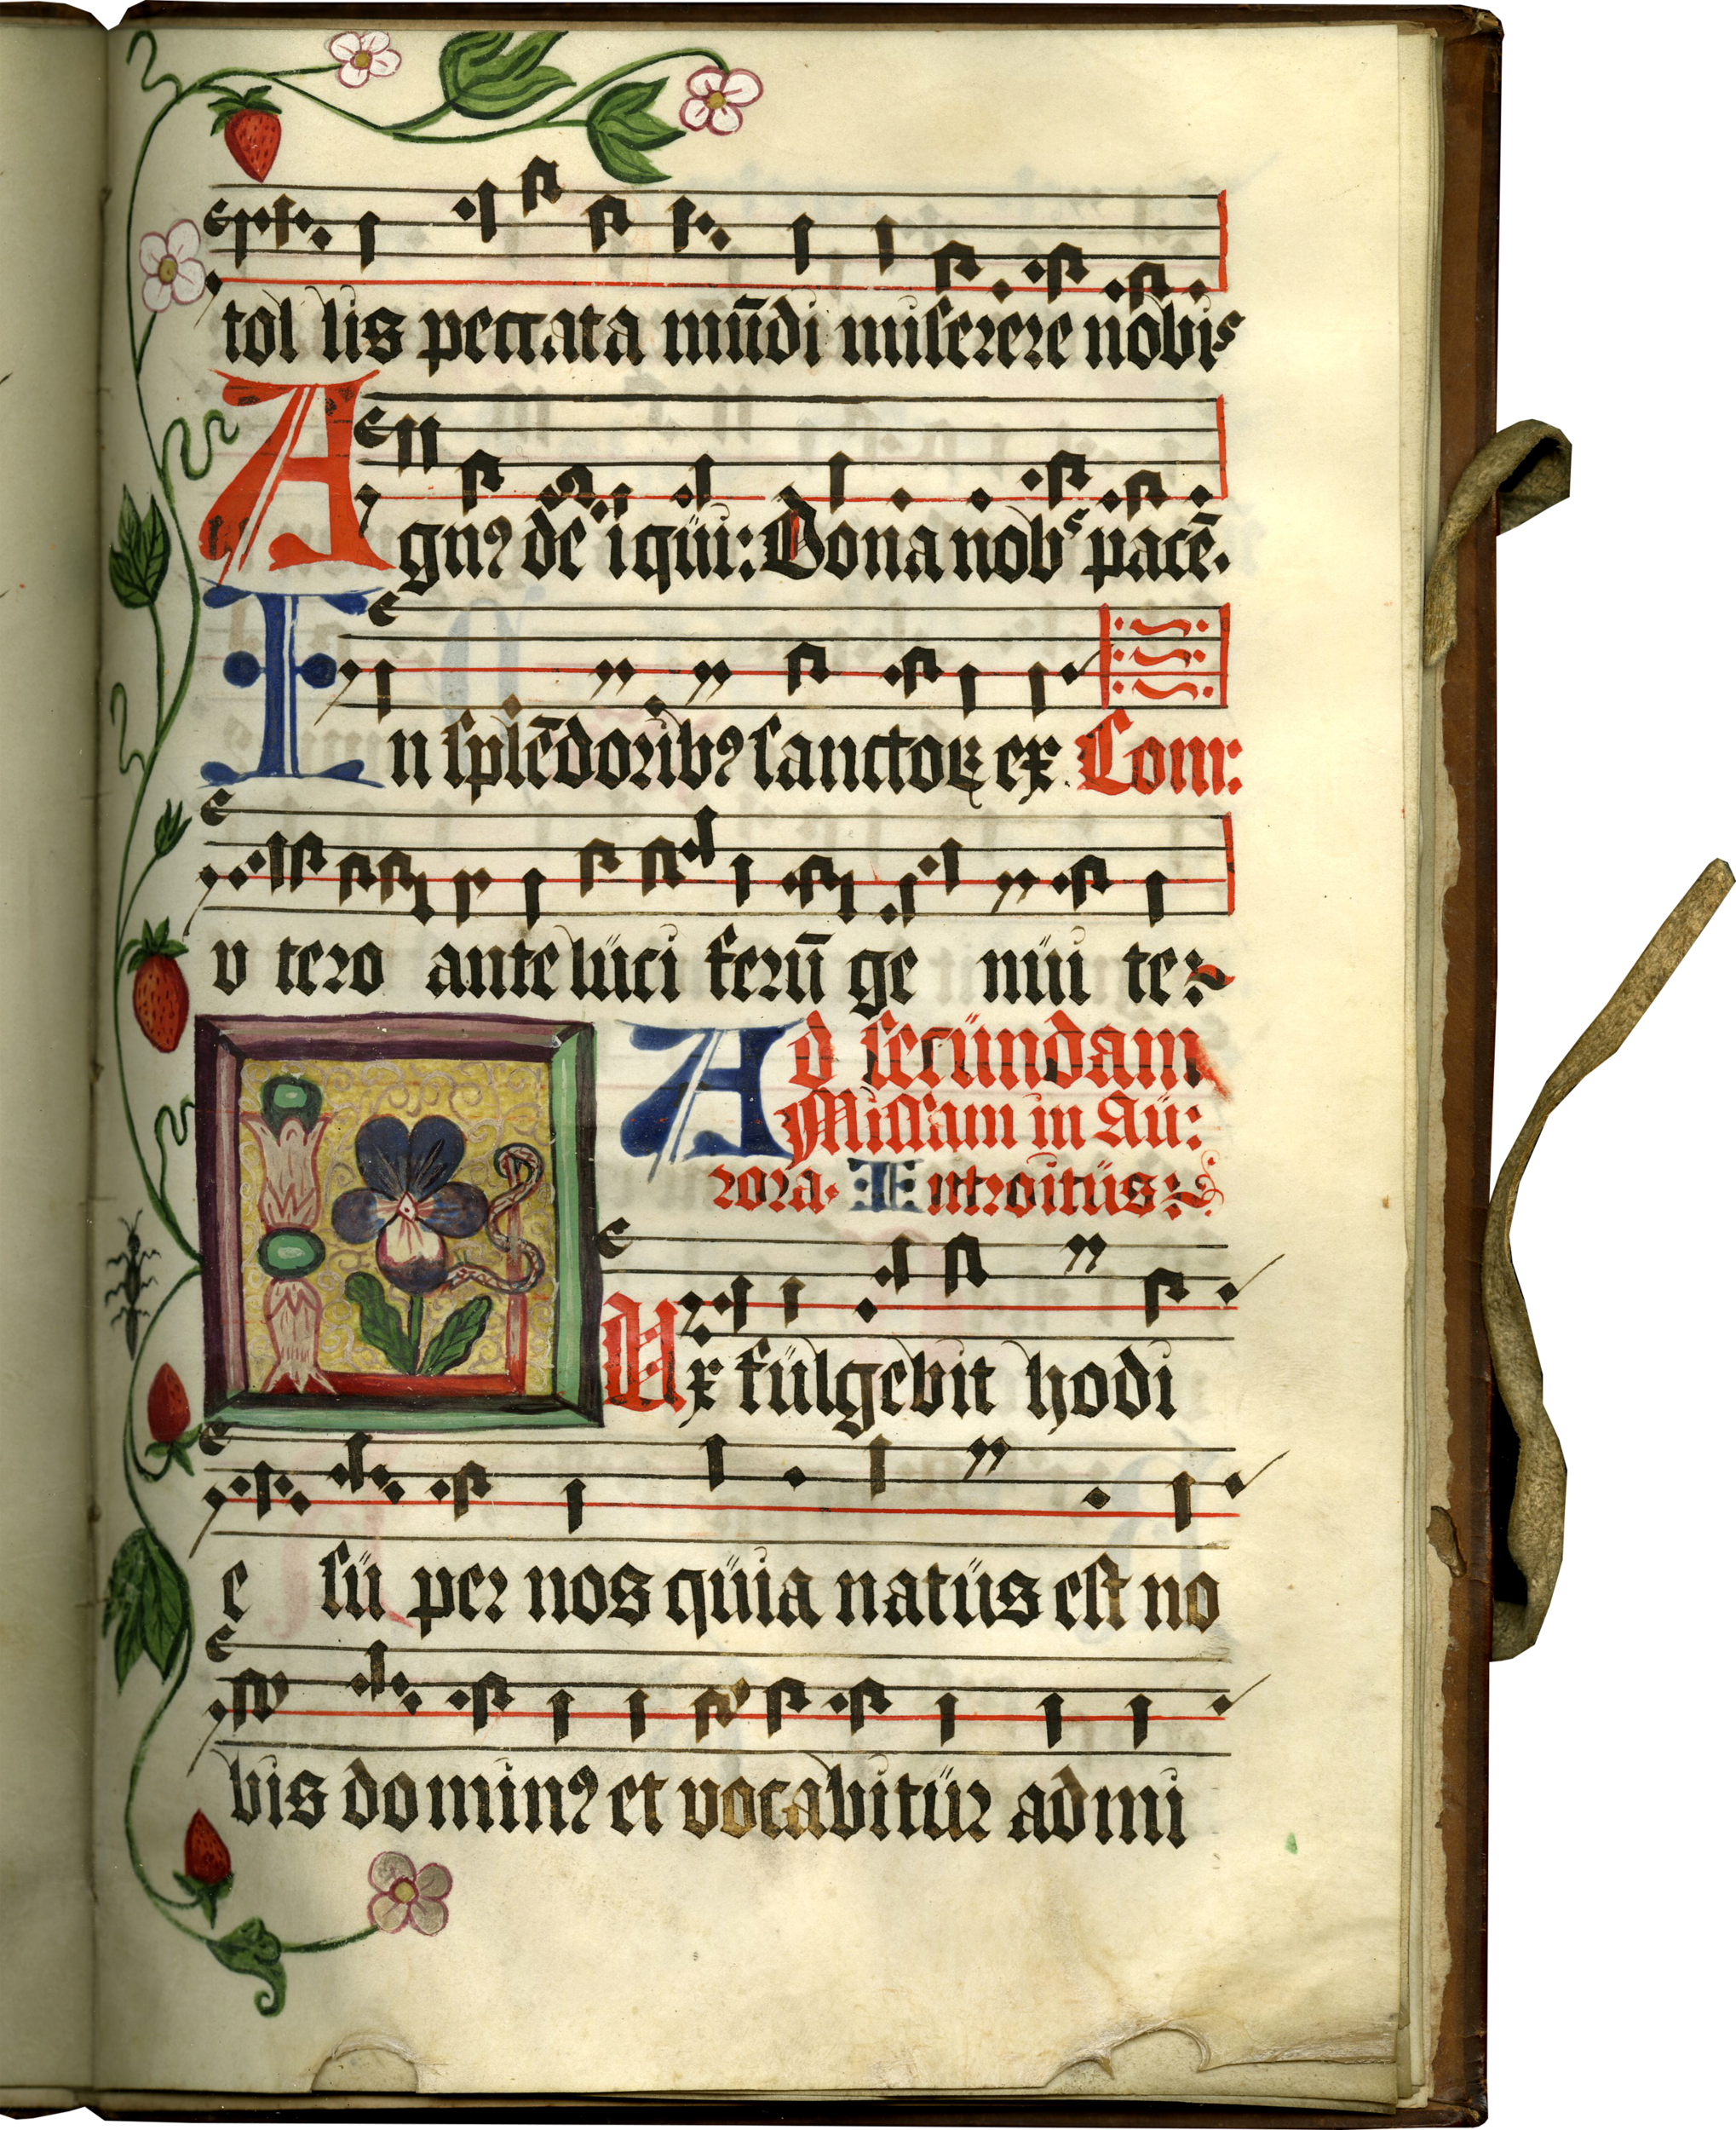 tol lis peccata mūdi miserere nobis
Agnꝰ de i qüi: Dona nobˢ pacē.
In splēdoribꝰ sanctoꝝ ex Com:
v tero ante lüci ferū ge nüi te
Ad secündam
Missam in Aü:
rora. Introitüs
Lux fülgebit hodi
e sü per nos qüia natüs est no
bis do minꝰ et vocabitür ad mi